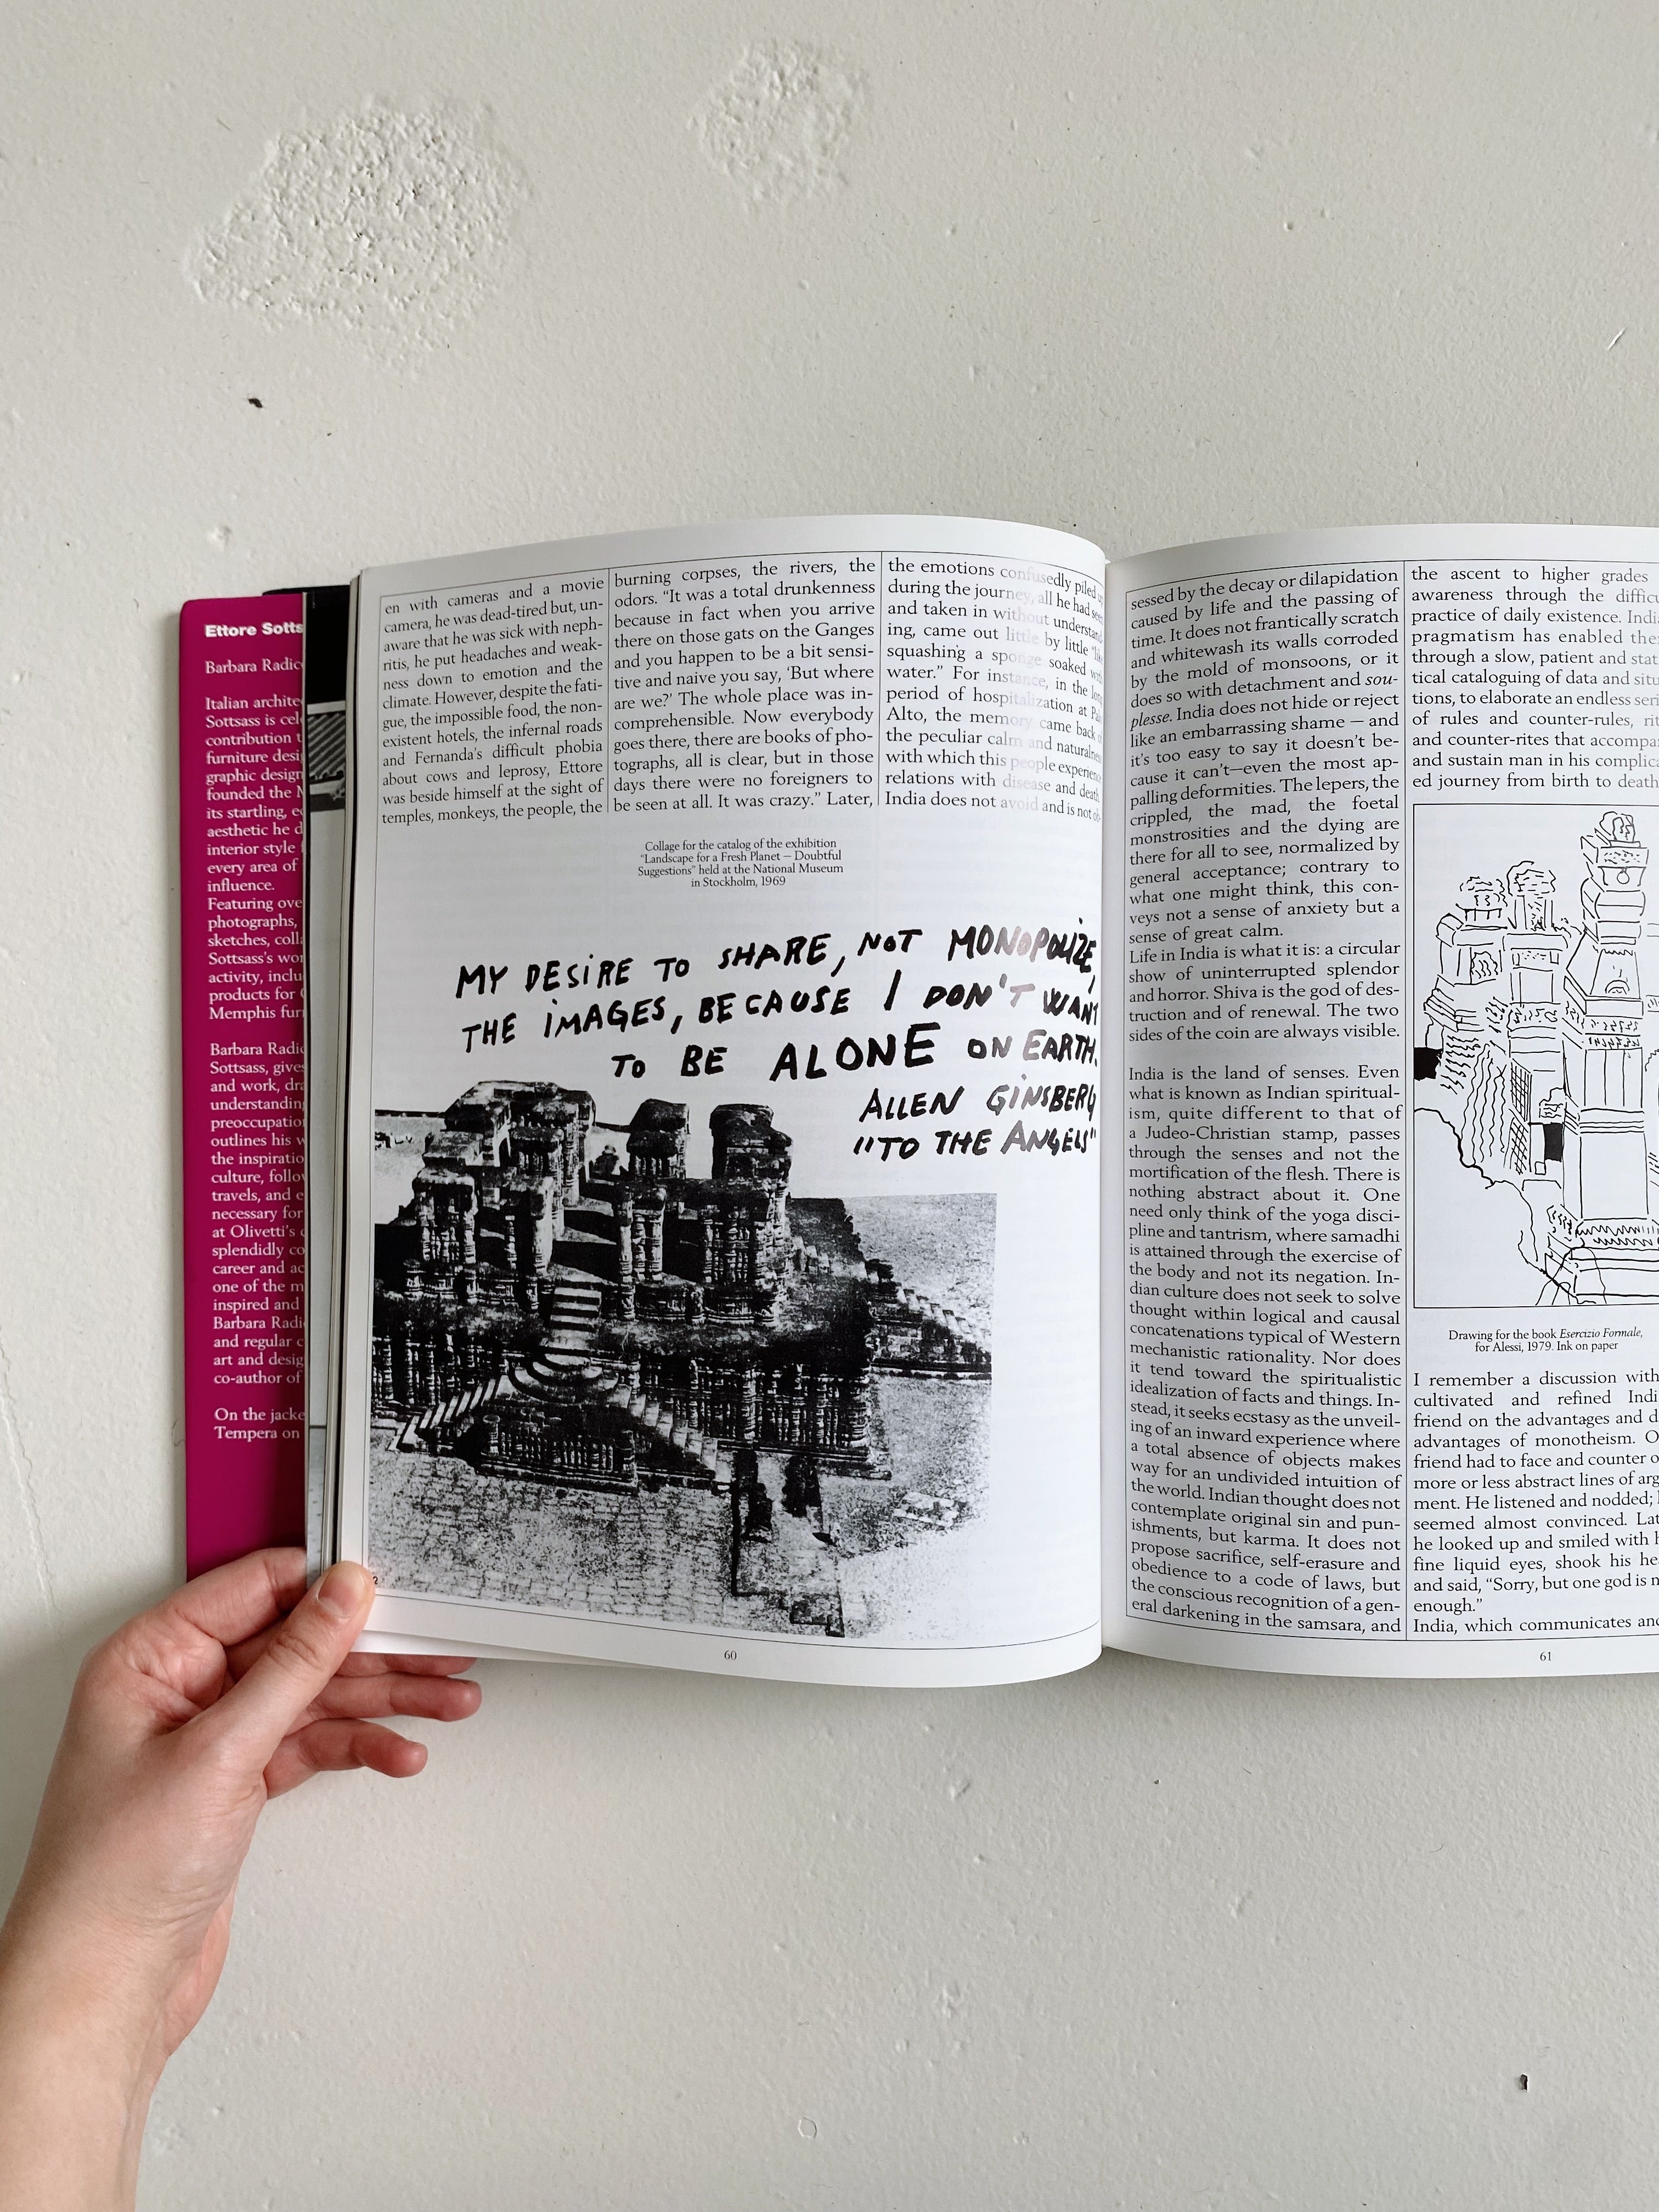 Ettore Sotts
Barbara Radic
Italian archite
Sottsass is cel
contribution t
furniture desi
graphic design
founded the M
its startling, e
aesthetic he d
interior style
every area of
influence.
Featuring ove
photographs,
sketches, coll
Sottsass's wor
activity, inclu
products for
Memphis fur
Barbara Radi
Sottsass, give
and work, dra
understandin
preoccupatio
outlines his w
the inspiratio
culture, follo
travels, and e
necessary for
at Olivetti's
splendidly co
career and ac
one of the m
inspired and
Barbara Radi
and regular c
art and desig
co-author of
On the jacke
Tempera on
en with cameras and a movie
camera, he was dead-tired but, un-
aware that he was sick with neph-
ritis, he put headaches and weak-
ness down to emotion and the
climate. However, despite the fati-
gue, the impossible food, the non-
existent hotels, the infernal roads
and Fernanda's difficult phobia
about cows and leprosy, Ettore
was beside himself at the sight of
temples, monkeys, the people, the
burning corpses, the rivers, the
odors. "It was a total drunkenness
because in fact when you arrive
there on those gats on the Ganges
and you happen to be a bit sensi-
tive and naive you say, 'But where
are we?' The whole place was in-
comprehensible. Now everybody
goes there, there are books of pho-
tographs, all is clear, but in those
days there were no foreigners to
be seen at all. It was crazy." Later,
the emotions confusedly piled
during the journey, all he had seen
and taken in without understand
ing, came out little by little "like
squashing a sponge soaked with
water." For instance, in the long
period of hospitalization at Palo
Alto, the memory came back of
the peculiar calm and naturalness
with which this people experience
relations with disease and death.
India does not avoid and is not ob-
Collage for the catalog of the exhibition
"Landscape for a Fresh Planet – Doubtful
Suggestions" held at the National Museum
in Stockholm, 1969
MY DESIRE TO SHARE, NOT MONOPOLIZE,
THE IMAGES, BECAUSE I DON'T WANT
TO BE ALONE ON EARTH.
ALLEN GINSBERG
"TO THE ANGELS"
2
60
sessed by the decay or dilapidation
caused by life and the passing of
time. It does not frantically scratch
and whitewash its walls corroded
by the mold of monsoons, or it
does so with detachment and sou-
plesse. India does not hide or reject
like an embarrassing shame — and
it's too easy to say it doesn't be-
cause it can't—even the most ap-
palling deformities. The lepers, the
crippled, the mad, the foetal
monstrosities and the dying are
there for all to see, normalized by
general acceptance; contrary to
what one might think, this con-
veys not a sense of anxiety but a
sense of great calm.
Life in India is what it is: a circular
show of uninterrupted splendor
and horror. Shiva is the god of des-
truction and of renewal. The two
sides of the coin are always visible.
India is the land of senses. Even
what is known as Indian spiritual-
ism, quite different to that of
a Judeo-Christian stamp, passes
through the senses and not the
mortification of the flesh. There is
nothing abstract about it. One
need only think of the yoga disci-
pline and tantrism, where samadhi
is attained through the exercise of
the body and not its negation. In-
dian culture does not seek to solve
thought within logical and causal
concatenations typical of Western
mechanistic rationality. Nor does
it tend toward the spiritualistic
idealization of facts and things. In-
stead, it seeks ecstasy as the unveil-
ing of an inward experience where
a total absence of objects makes
way for an undivided intuition of
the world. Indian thought does not
contemplate original sin and pun-
ishments, but karma. It does not
propose sacrifice, self-erasure and
obedience to a code of laws, but
the conscious recognition of a gen-
eral darkening in the samsara, and
the ascent to higher grades
awareness through the difficu
practice of daily existence. Indi
pragmatism has enabled the
through a slow, patient and stat
tical cataloguing of data and situ
tions, to elaborate an endless seri
of rules and counter-rules, rit
and counter-rites that accompa
and sustain man in his complica
ed journey from birth to death
Drawing for the book Esercizio Formale,
for Alessi, 1979. Ink on paper
I remember a discussion with
cultivated and refined Indi
friend on the advantages and d
advantages of monotheism. O
friend had to face and counter o
more or less abstract lines of arg
ment. He listened and nodded;
seemed almost convinced. Lat
he looked up and smiled with h
fine liquid eyes, shook his he
and said, "Sorry, but one god is n
enough."
India, which communicates and
61